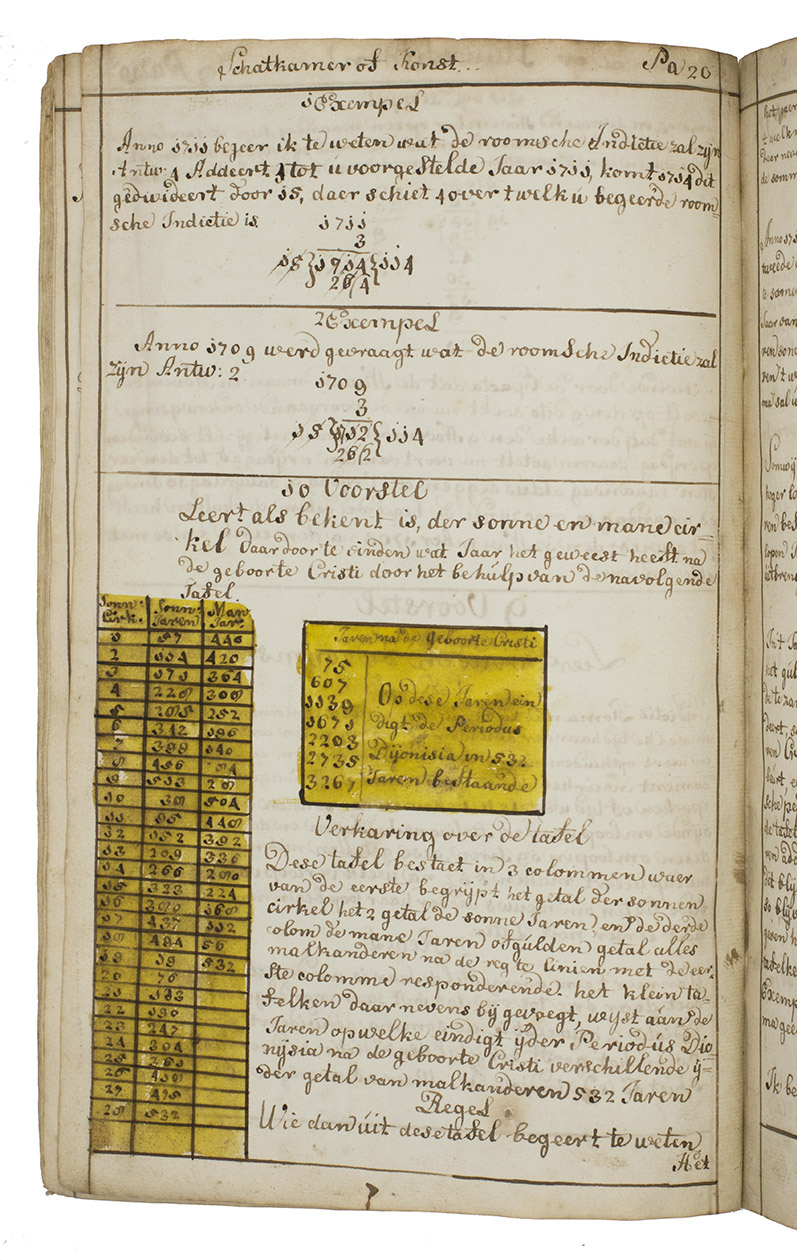 Schatkamer of Konst...
Pa 20
1 Exempel
Anno 1711 begeer ik te weten wat de roomsche Indictie zal zijn
Antw: 4 Addeert 3 tot u voorgestelde Jaar 1711, komt 1714 dit
gedivideert door 15, daer schiet 4 over twelk u begeerde room-
sche Indictie is
1711
3
15 } 1714 { 114
26/4
2 Exempel
Anno 1709 werd gevraagt wat de roomsche Indictie zal
zijn Antw: 2
1709
3
15 } 1712 { 114
26/2
10 Voorstel
Leert als bekent is, der sonne en mane cir-
kel daar door te vinden wat Jaar het geweest heeft na
de geboorte Cristi door het behulp van de navolgende
Tafel.
Sonn: Sonn: Man
Cirk: Jaren Jar:
1 57 448
2 114 420
3 171 364
4 228 308
5 285 252
6 342 196
7 399 140
8 456 84
9 513 28
10 38 504
11 95 448
12 152 392
13 209 336
14 266 280
15 323 224
16 380 168
17 437 112
18 494 56
19 19 532
20 76
21 133
22 190
23 247
24 304
25 361
26 418
27 475
28 532
Jaren na de geboorte Cristi
75
607
1139
1671
2203
2735
3267
Op dese Jaren ein
digt de Periodus
Dijonisia in 532
Jaren bestaande
Verkaring over de tafel
Dese tafel bestaet in 3 colommen waer
van de eerste begrijpt het getal der sonnen
cirkel het 2 getal de sonne Jaren, en de derde
colom de mane Jaren of gulden getal alles
malkanderen na de regte linien met de eer-
ste colomme responderende. het klein ta-
felken daar nevens bij gevoegt, wyst aan de
Jaren op welke eindigt ijder Periodus Dio
nijsia na de geboorte Cristi verschillende ij-
der getal van malkanderen 532 Jaren
Regel
Wie dan uit dese tafel begeert te weten
Het